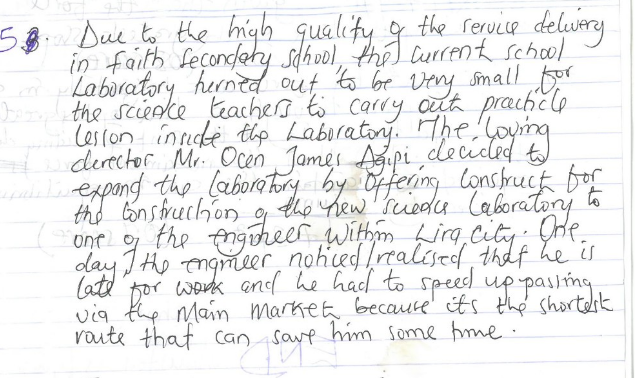 5. Due to the high quality of the service delivery
in Faith Secondary school, the current school
Laboratory turned out to be very small for
the science teachers to carry out practicle
lesson inside the Laboratory. The loving
derector Mr. Ocen James Agipi decided to
expand the laboratory by offering construct for
the construction of the new science Laboratory to
one of the engineer within Lira City. One
day, the engineer noticed/realised that he is
late for work and he had to speed up passing
via the Main Market because its the shortest
route that can save him some time.